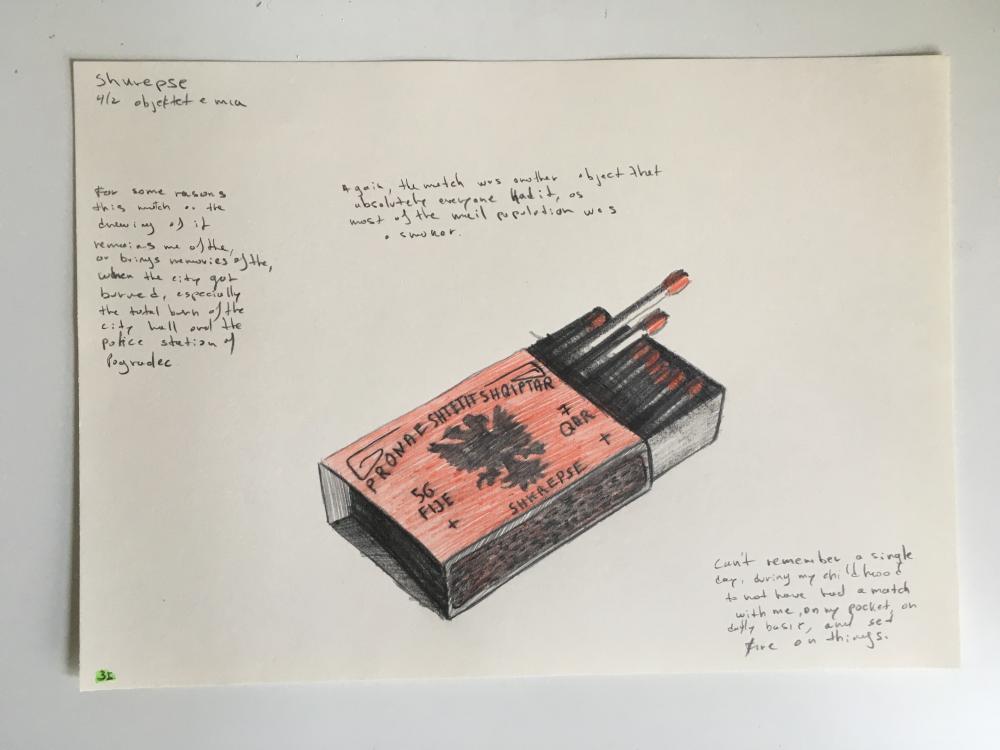 Shurepse
4/2 objektet e mia
For some reasons
this match or the
drawing of it
remains me of the,
or brings memories of the,
when the city got
burned, especially
the total burn of the
city hall and the
police station of
Pogradec
Again, the match was another object that
absolutely everyone had it, as
most of the meil population was
a smoker.
PRONA E SHTETIT SHQIPTAR
7
QDR
+
56
FIJE
+
SHKREPSE
Can't remember a single
day, during my childhood
to not have had a match
with me, on my pocket, on
daily basic, and set
fire on things.